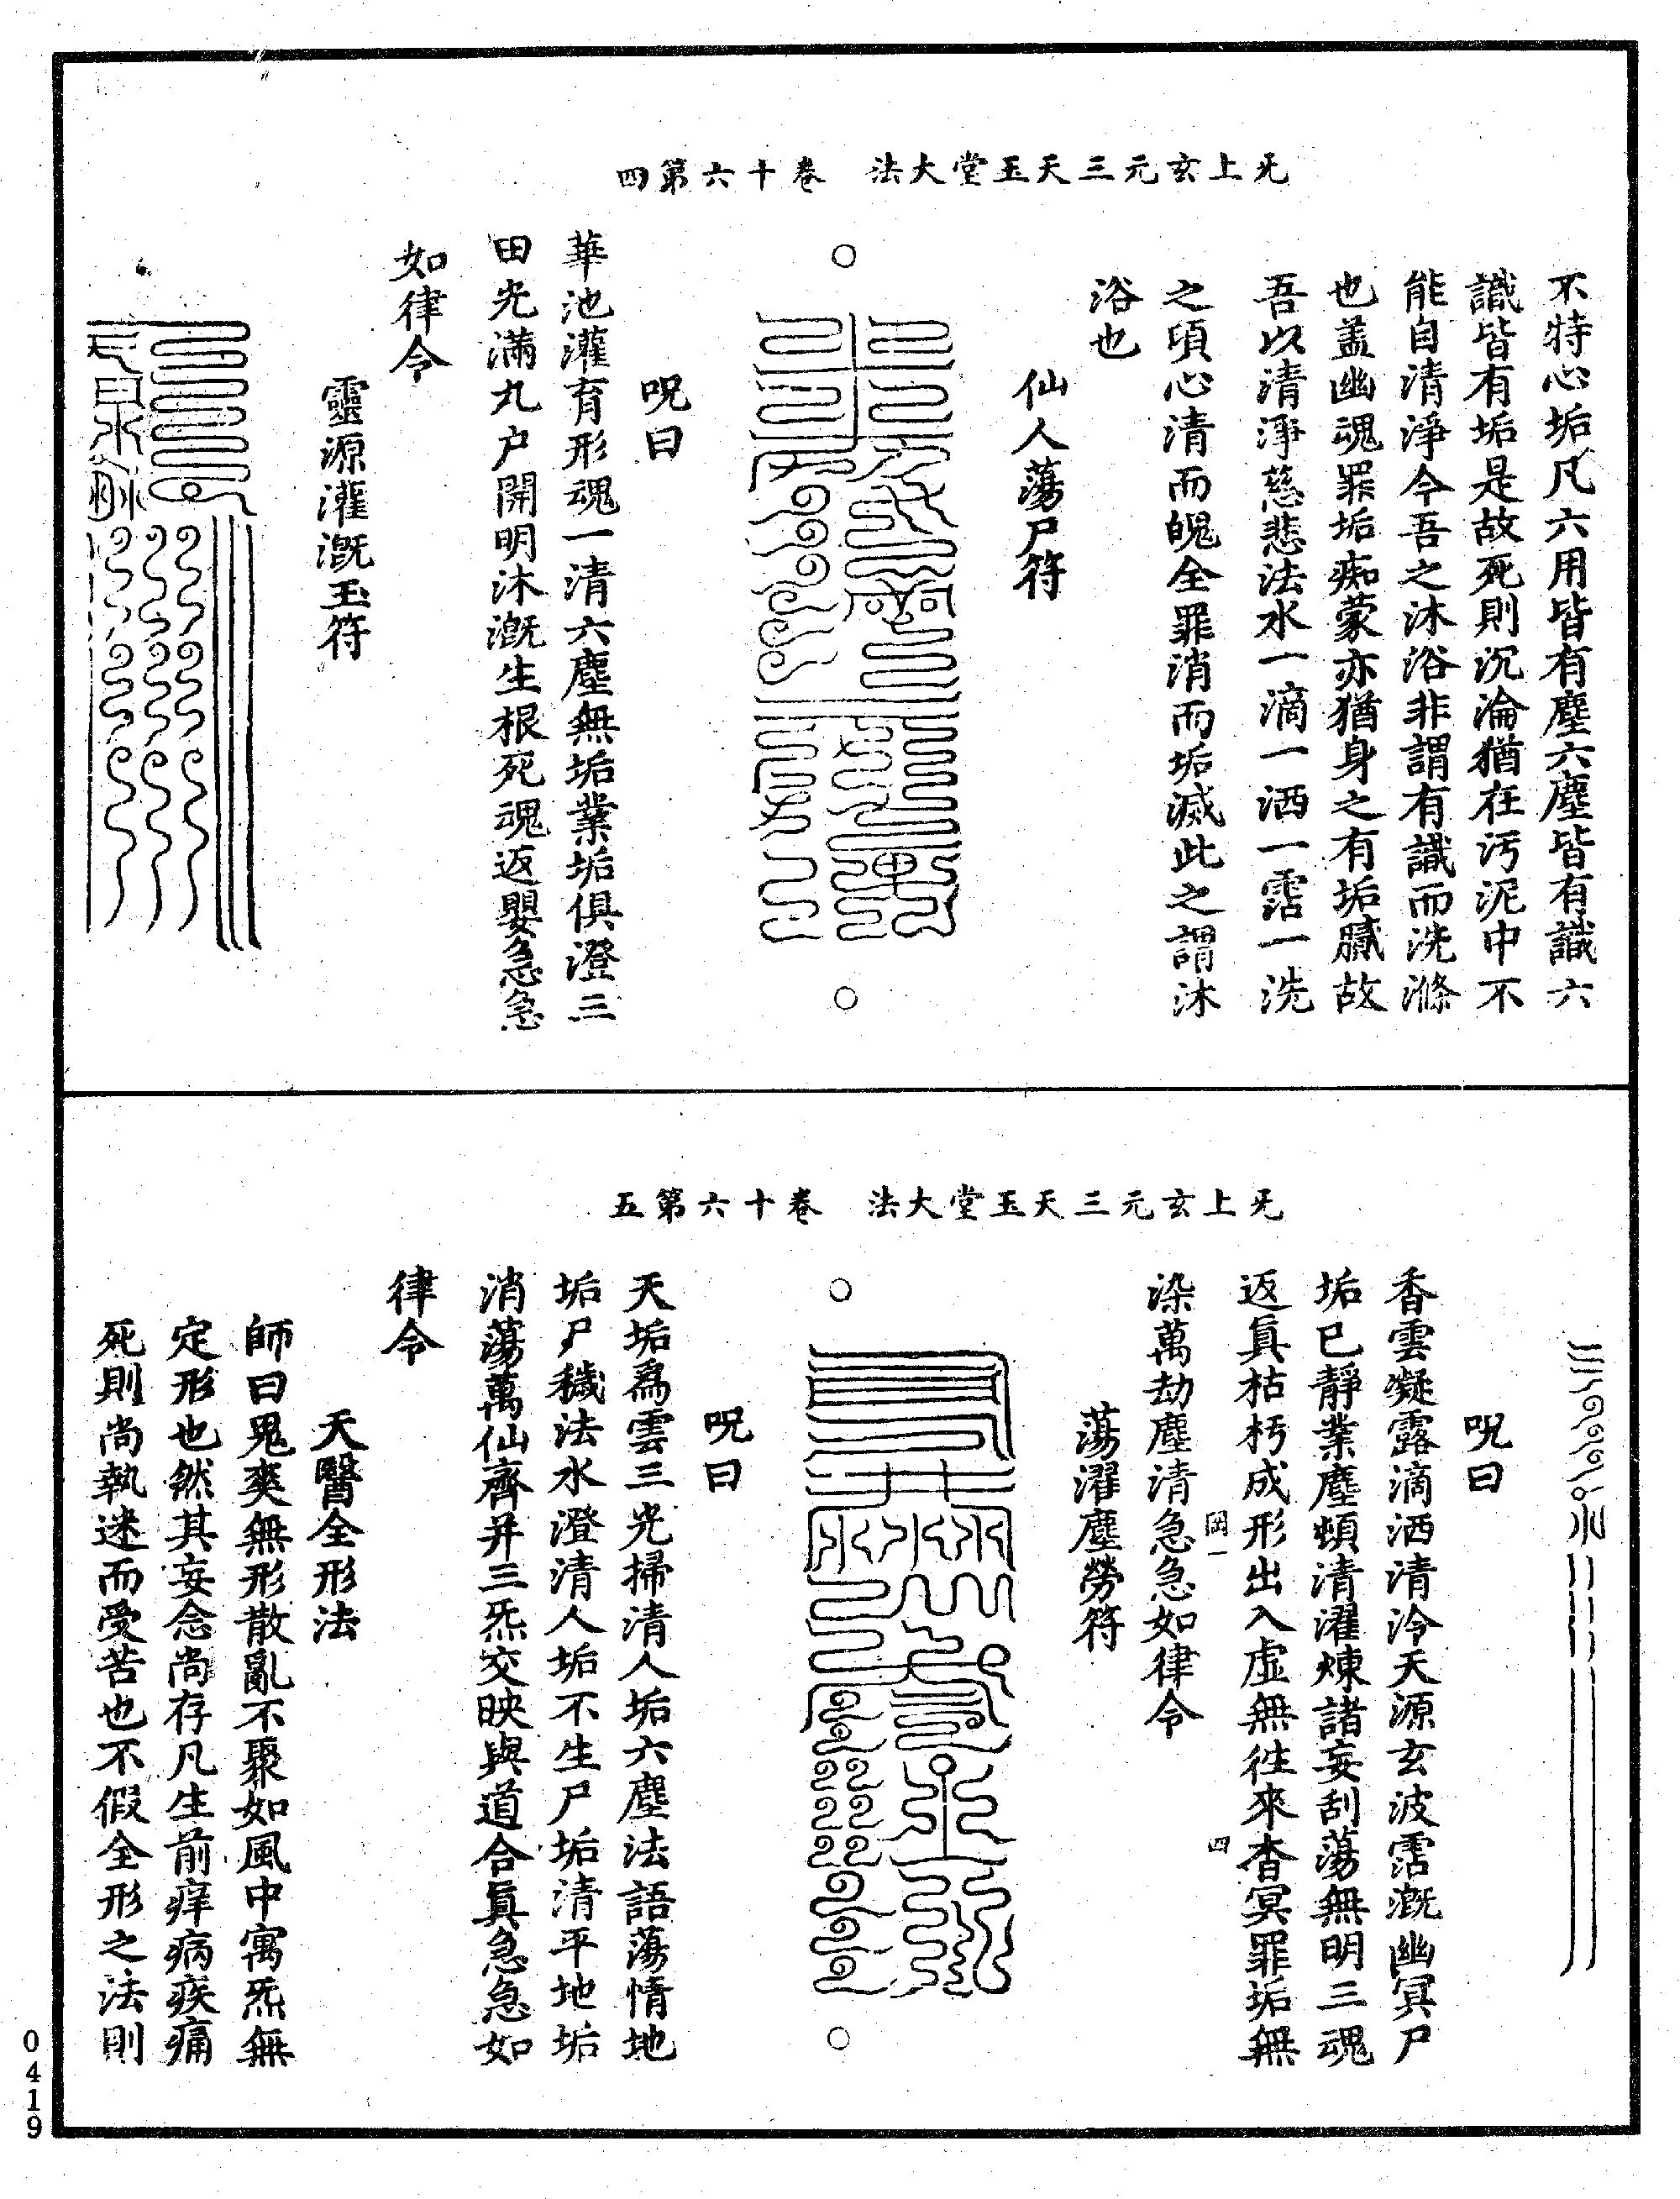 无上玄元三天玉堂大法　卷十六第四
不特心垢凡六用皆有塵六塵皆有識六
識皆有垢是故死則沉淪猶在汚泥中不
能自清淨今吾之沐浴非謂有識而洗滌
也蓋幽魂罪垢痴蒙亦猶身之有垢膩故
吾以清淨慈悲法水一滴一洒一霑一洗
之頃心清而魄全罪消而垢滅此之謂沐
浴也
仙人蕩尸符
呪曰
華池灌育形魂一清六塵無垢業垢俱澄三
田光滿九户開明沐漑生根死魂返嬰急急
如律令
靈源灌漑玉符
无上玄元三天玉堂大法　卷十六第五
呪曰
香雲凝露滴洒清泠天源玄波霑漑幽冥尸
垢已靜業塵頓清濯煉諸妄刮蕩無明三魂
返眞枯朽成形出入虛無往來杳冥罪垢無
罔一　四
染萬劫塵清急急如律令
蕩濯塵勞符
呪曰
天垢爲雲三光掃清人垢六塵法語蕩情地
垢尸穢法水澄清人垢不生尸垢清平地垢
消蕩萬仙齊并三炁交映與道合眞急急如
律令
天醫全形法
師曰鬼爽無形散亂不聚如風中寓炁無
定形也然其妄念尚存凡生前痒病疾痛
死則尚執迷而受苦也不假全形之法則
0419